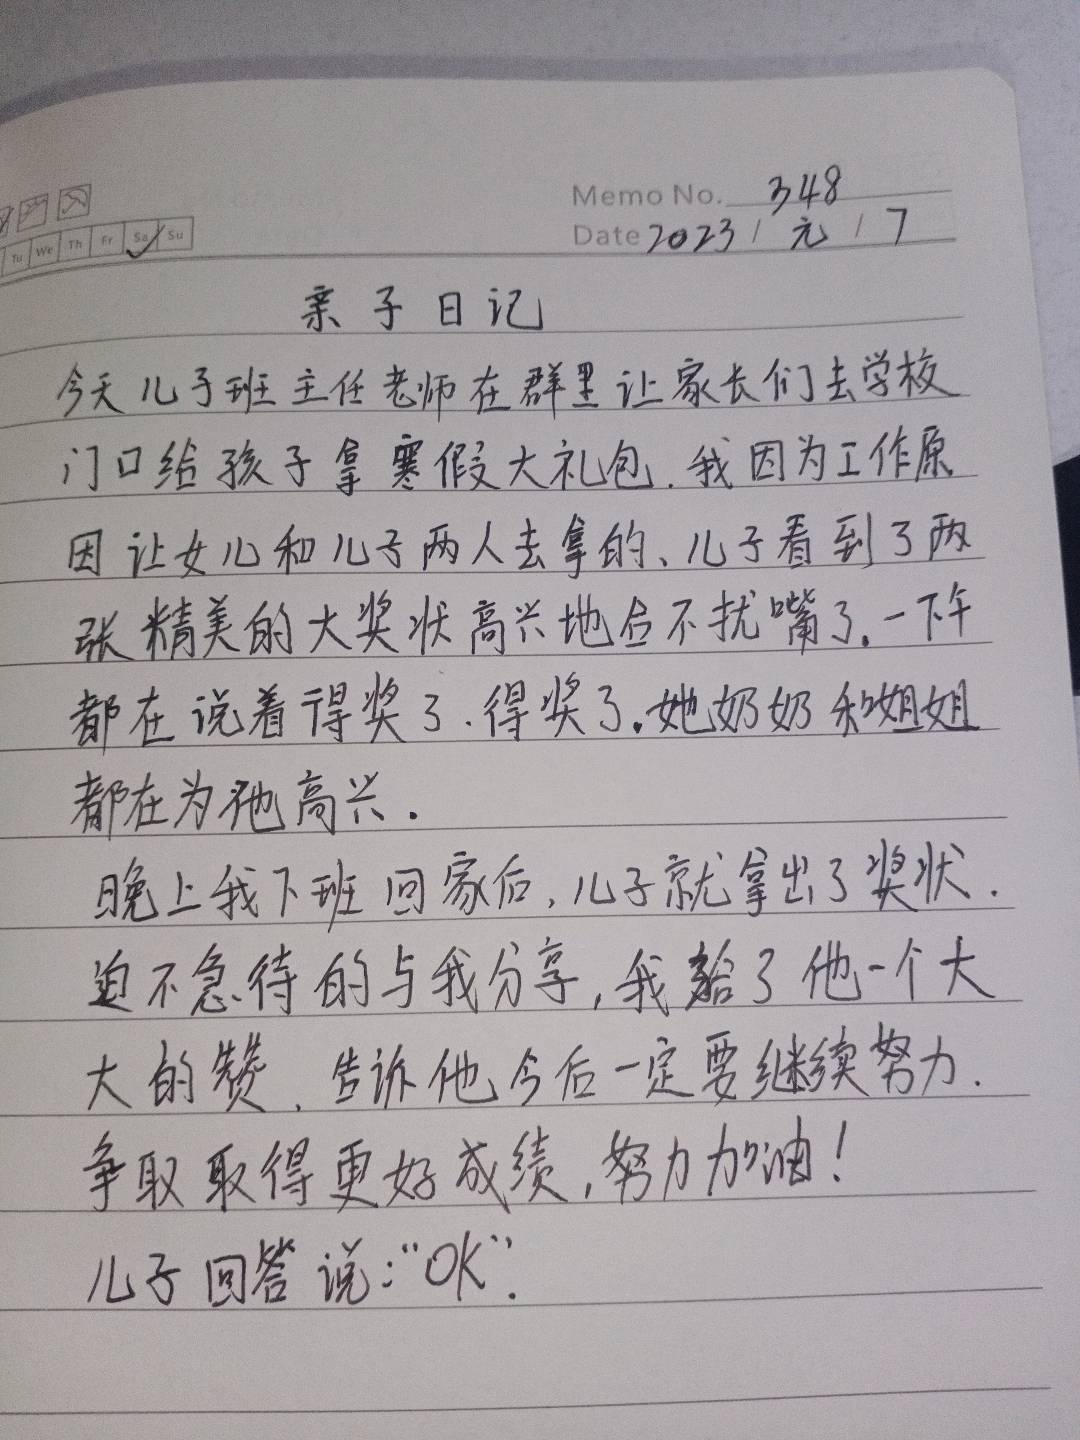 Memo No. 348
Tu We Th Fr Sa Su
Date 2023 / 元 / 7
亲子日记
今天儿子班主任老师在群里让家长们去学校
门口给孩子拿寒假大礼包.我因为工作原
因让女儿和儿子两人去拿的、儿子看到了两
张精美的大奖状高兴地合不扰嘴了.一下午
都在说着得奖了.得奖了.她奶奶和姐姐
都在为他高兴.
晚上我下班回家后,儿子就拿出了奖状.
迫不急待的与我分享,我给了他一个大
大的赞、告诉他今后一定要继续努力.
争取取得更好成绩,努力加油!
儿子回答说:“OK”.